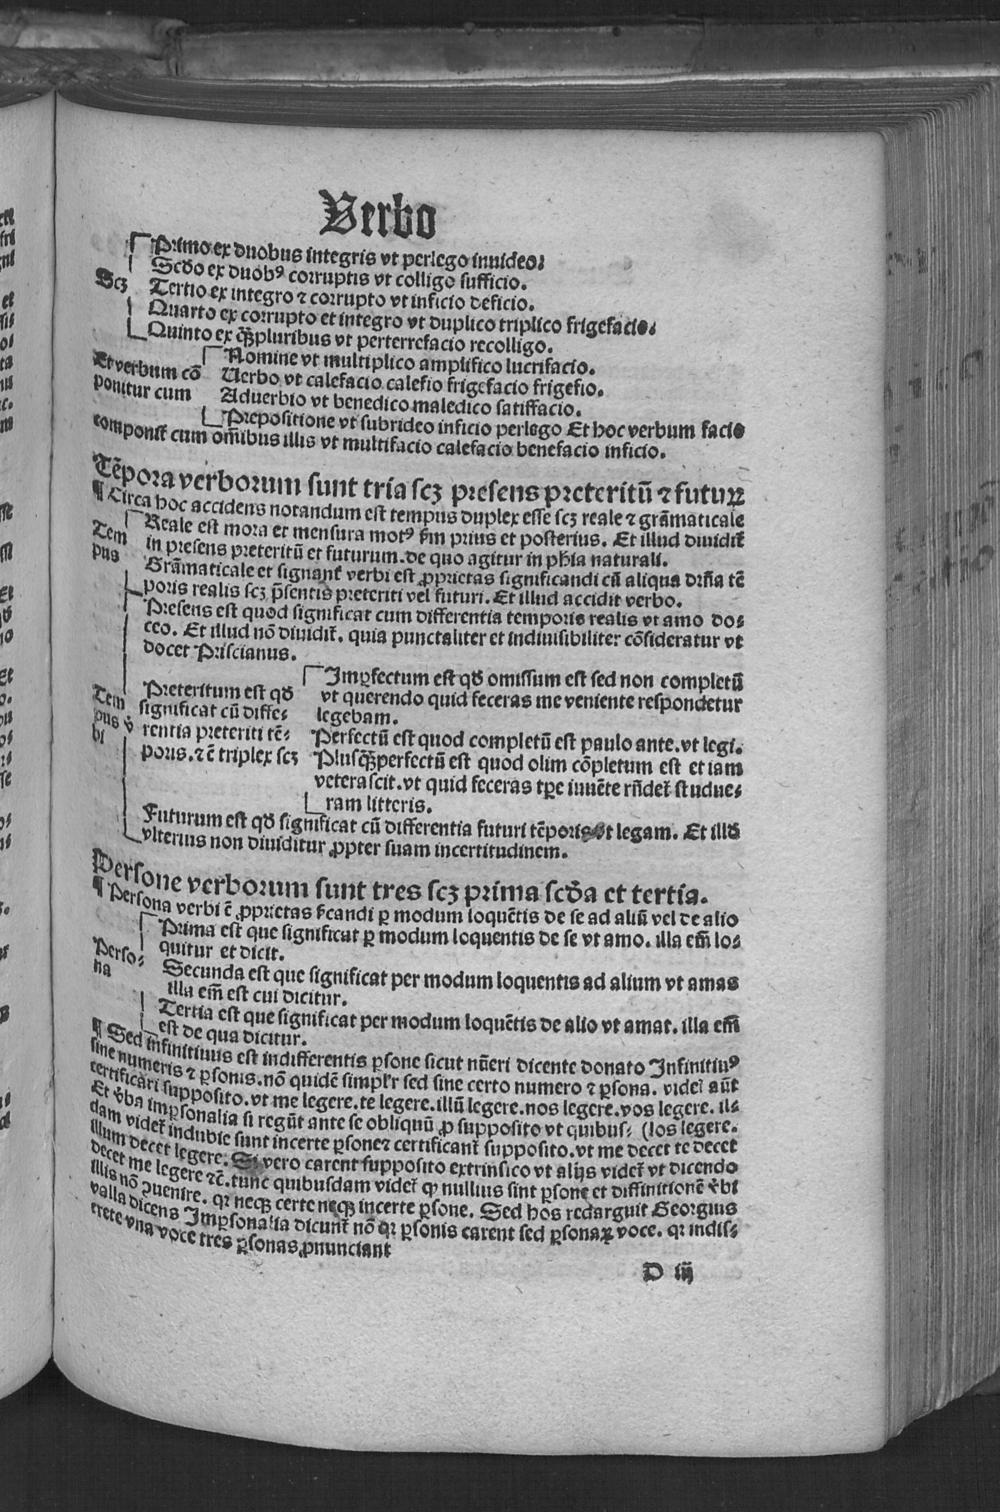 Verbo
Primo ex duobus integris vt perlego inuideo.
Scd̄o ex duobꝰ corruptis vt colligo sufficio.
Scꝫ Tertio ex integro ⁊ corrupto vt inficio deficio.
Quarto ex corrupto et integro vt duplico triplico frigefacio.
Quinto ex qꝫ̄pluribus vt perterrefacio recolligo.
Et verbum cō
ponitur cum
Nomine vt multiplico amplifico lucrifacio.
Uerbo vt calefacio calefio frigefacio frigefio.
Aduerbio vt benedico maledico satiffacio.
Prepositione vt subrideo inficio perlego Et hoc verbum facio
componit᷑ cum om̄ibus illis vt multifacio calefacio benefacio inficio.
Tēpora verborum sunt tria scꝫ presens preteritū ⁊ futuꝝ
¶ Circa hoc accidens notandum est tempus duplex esse scꝫ reale ⁊ grāmaticale
Tem
pus
Reale est mora et mensura motꝰ ẜm prius et posterius. Et illud diuidit᷑
in presens preteritū et futurum. de quo agitur in phīa naturali.
Grāmaticale et signant᷑ verbi est ꝓprietas significandi cū aliqua drīa tē
poris realis scꝫ p̄sentis preteriti vel futuri. Et illud accidit verbo.
Presens est quod significat cum differentia temporis realis vt amo do⸗
ceo. Et illud nō diuidit᷑. quia punctaliter et indiuisibiliter cōsideratur vt
docet Priscianus.
Tem
pus v̓
bi
Preteritum est qd̄
significat cū diffe⸗
rentia preteriti tē⸗
poris. ⁊ ē triplex scꝫ
Imꝑfectum est qd̄ omissum est sed non completū
vt querendo quid feceras me veniente respondetur
legebam.
Perfectū est quod completū est paulo ante. vt legi.
Plusqꝫ̄perfectū est quod olim cōpletum est et iam
veterascit. vt quid feceras tꝑe iuuēte rn̄det᷑ studue⸗
ram litteris.
Futurum est qd̄ significat cū differentia futuri tēporis vt legam. Et illd̄
vlterius non diuiditur ꝓpter suam incertitudinem.
Persone verborum sunt tres scꝫ prima scd̄a et tertia.
¶ Persona verbi ē ꝓprietas ẜcandi ꝑ modum loquētis de se ad aliū vel de alio
Perso⸗
na
Prima est que significat ꝑ modum loquentis de se vt amo. illa em̄ lo⸗
quitur et dicit.
Secunda est que significat per modum loquentis ad alium vt amas
illa em̄ est cui dicitur.
Tertia est que significat per modum loquētis de alio vt amat. illa em̄
est de qua dicitur.
¶ Sed infinitiuus est indifferentis ꝑsone sicut nūeri dicente donato Infinitiuꝰ
sine numeris ⁊ ꝑsonis. nō quidē simpl̓r sed sine certo numero ⁊ ꝑsona. videt᷑ aūt
certificari supposito. vt me legere. te legere. illū legere. nos legere. vos legere. il⸗
Et v̓ba imꝑsonalia si regūt ante se obliquū ꝓ supposito vt quibus⸗ (los legere.
dam videt᷑ indubie sunt incerte ꝑsone⁊ certificant᷑ supposito. vt me decet te decet
illum decet legere. Si vero carent supposito extrinsico vt alijs videt᷑ vt dicendo
decet me legere ⁊c̄. tunc quibusdam videt᷑ ꝙ nullius sint ꝑsone et diffinitionē v̓bi
illis nō ꝯuenire. qꝛ neqꝫ certe neqꝫ incerte ꝑsone. Sed hos redarguit Georgius
valla dicens Imꝑsonalia dicunt᷑ nō qꝛ ꝑsonis carent sed ꝑsonaꝝ voce. qꝛ indis⸗
crete vna voce tres ꝑsonas ꝓnunciant
D iij